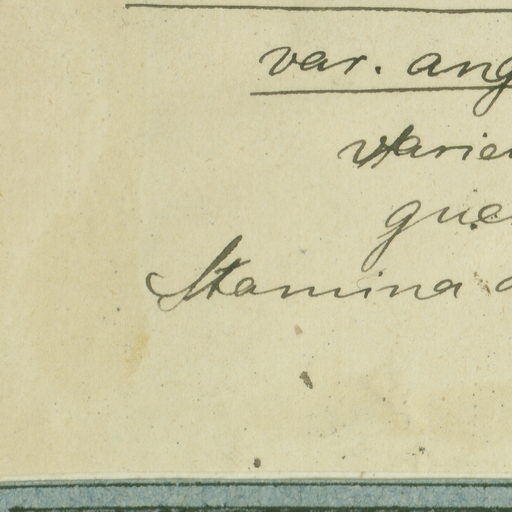 var. ang
Varie
gue
Stamina